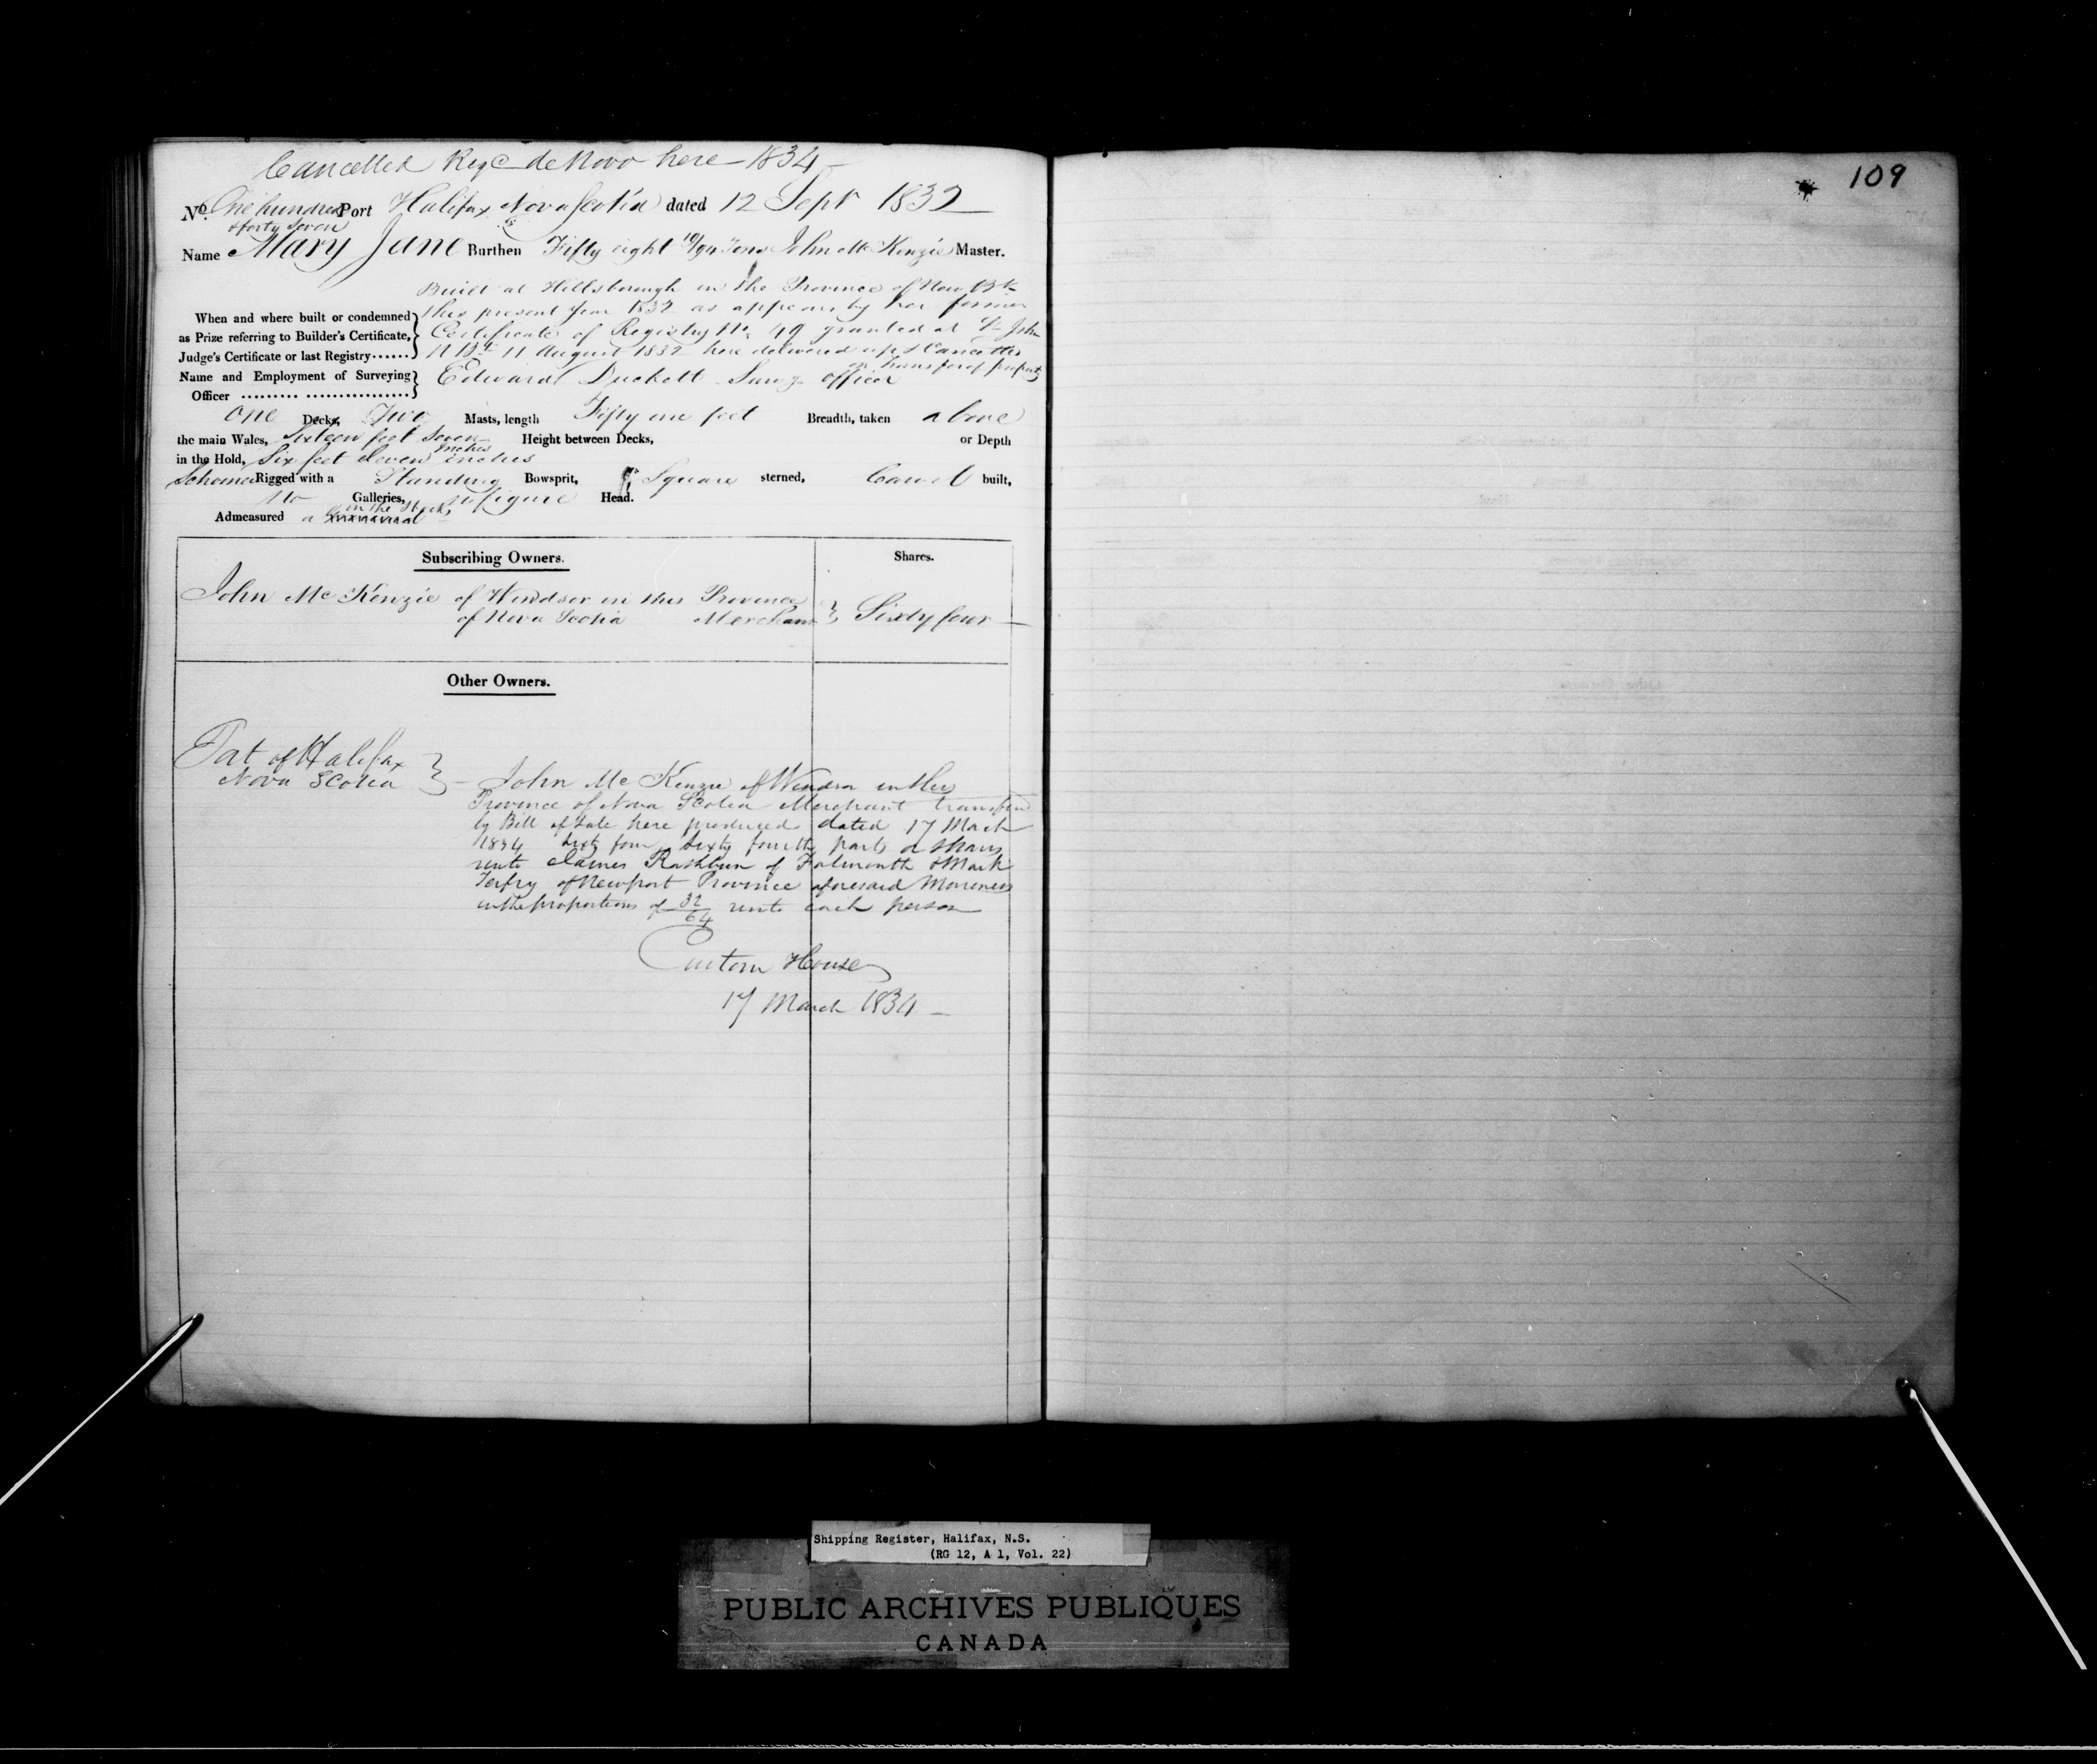 Cancelled Regd de Novo here 1834
No. One hundred & forty Seven Port Halifax Nova Scotia dated 12 Sept 1832
Name Mary Jane Burthen Fifty eight 10/94 Tons John McKenzie Master.
Built at Hillsborough in the Province of New Bk
When and where built or condemned this present year 1832 as appears by her former
as Prize referring to Builder's Certificate, Certificate of Registry No. 49 granted at St John
Judge's Certificate or last Registry...... N Bk 11 August 1832 here delivered up & Cancelled
on transfer of property
Name and Employment of Surveying Edward Duckett Survg officer
Officer ......... ................
One Decks, Two Masts, length Fifty one feet Breadth, taken above
the main Wales, Sixteen feet Seven inches Height between Decks, or Depth
in the Hold, Six feet Eleven inches
Schooner Rigged with a Standing Bowsprit, Square sterned, Carvel built,
No Galleries, no figure Head.
Admeasured in the Stocks
Subscribing Owners. Shares.
John McKenzie of Windsor in this Province
of Nova Scotia Merchant Sixty four
Other Owners.
Port of Halifax
Nova Scotia John McKenzie of Windsor in the
Province of Nova Scotia Merchant transferred
by Bill of Sale here produced dated 17 March
1834 Sixty four Sixty fourth parts or shares
unto James Rathbun of Falmouth & Mark
of Newport Province aforesaid Mariners
in the proportions of 32/64 unto each person
Custom House
17 March 1834
109
Shipping Register, Halifax, N.S.
(RG 12, A 1, Vol. 22)
PUBLIC ARCHIVES PUBLIQUES
CANADA